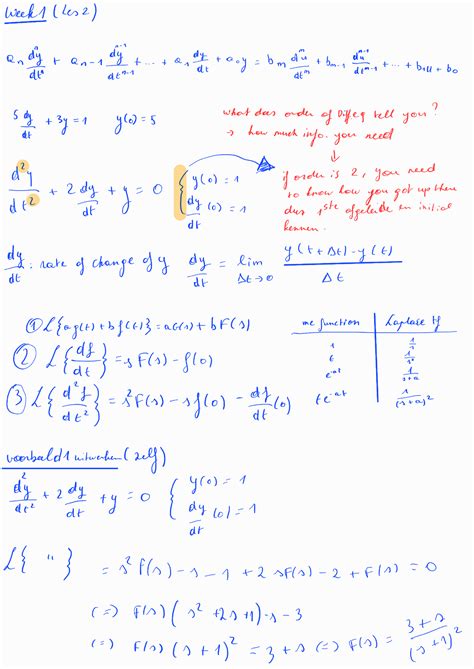 Week 1 (Les 2)
a_n d^n y/dt^n + a_{n-1} d^{n-1}y/dt^{n-1} + ... + a_1 dy/dt + a_0 y = b_m d^m u/dt^m + b_{m-1} d^{m-1}/dt^{m-1} + ... + b_1 u + b_0
5 dy/dt + 3y = 1   y(0) = 5
what does order of Diffeq tell you?
→ how much info. you need
d²y/dt² + 2 dy/dt + y = 0 { y(0) = 1
dy/dt (0) = 1
if order is 2, you need
to know how you got up there
dus 1ste afgeleide en initial
kennen.
dy/dt : rate of change of y   dy/dt = lim Δt→0 (y(t + Δt) - y(t)) / Δt
① L{ag(t) + bf(t)} = aG(s) + bF(s)
② L{df/dt} = sF(s) - f(0)
③ L{d²f/dt²} = s²F(s) - sf(0) - df/dt (0)
function | Laplace tf
1 | 1/s
t | 1/s²
e^-at | 1/(s+a)
te^-at | 1/(s+a)²
voorbeeld 1 uitwerken (zelf)
d²y/dt² + 2 dy/dt + y = 0 { y(0) = 1
dy/dt (0) = 1
L{ " } = s² F(s) - s - 1 + 2 s F(s) - 2 + F(s) = 0
(=) F(s) (s² + 2s + 1) - s - 3
(=) F(s) (s + 1)² = 3 + s (=) F(s) = (3 + s)/(s + 1)²